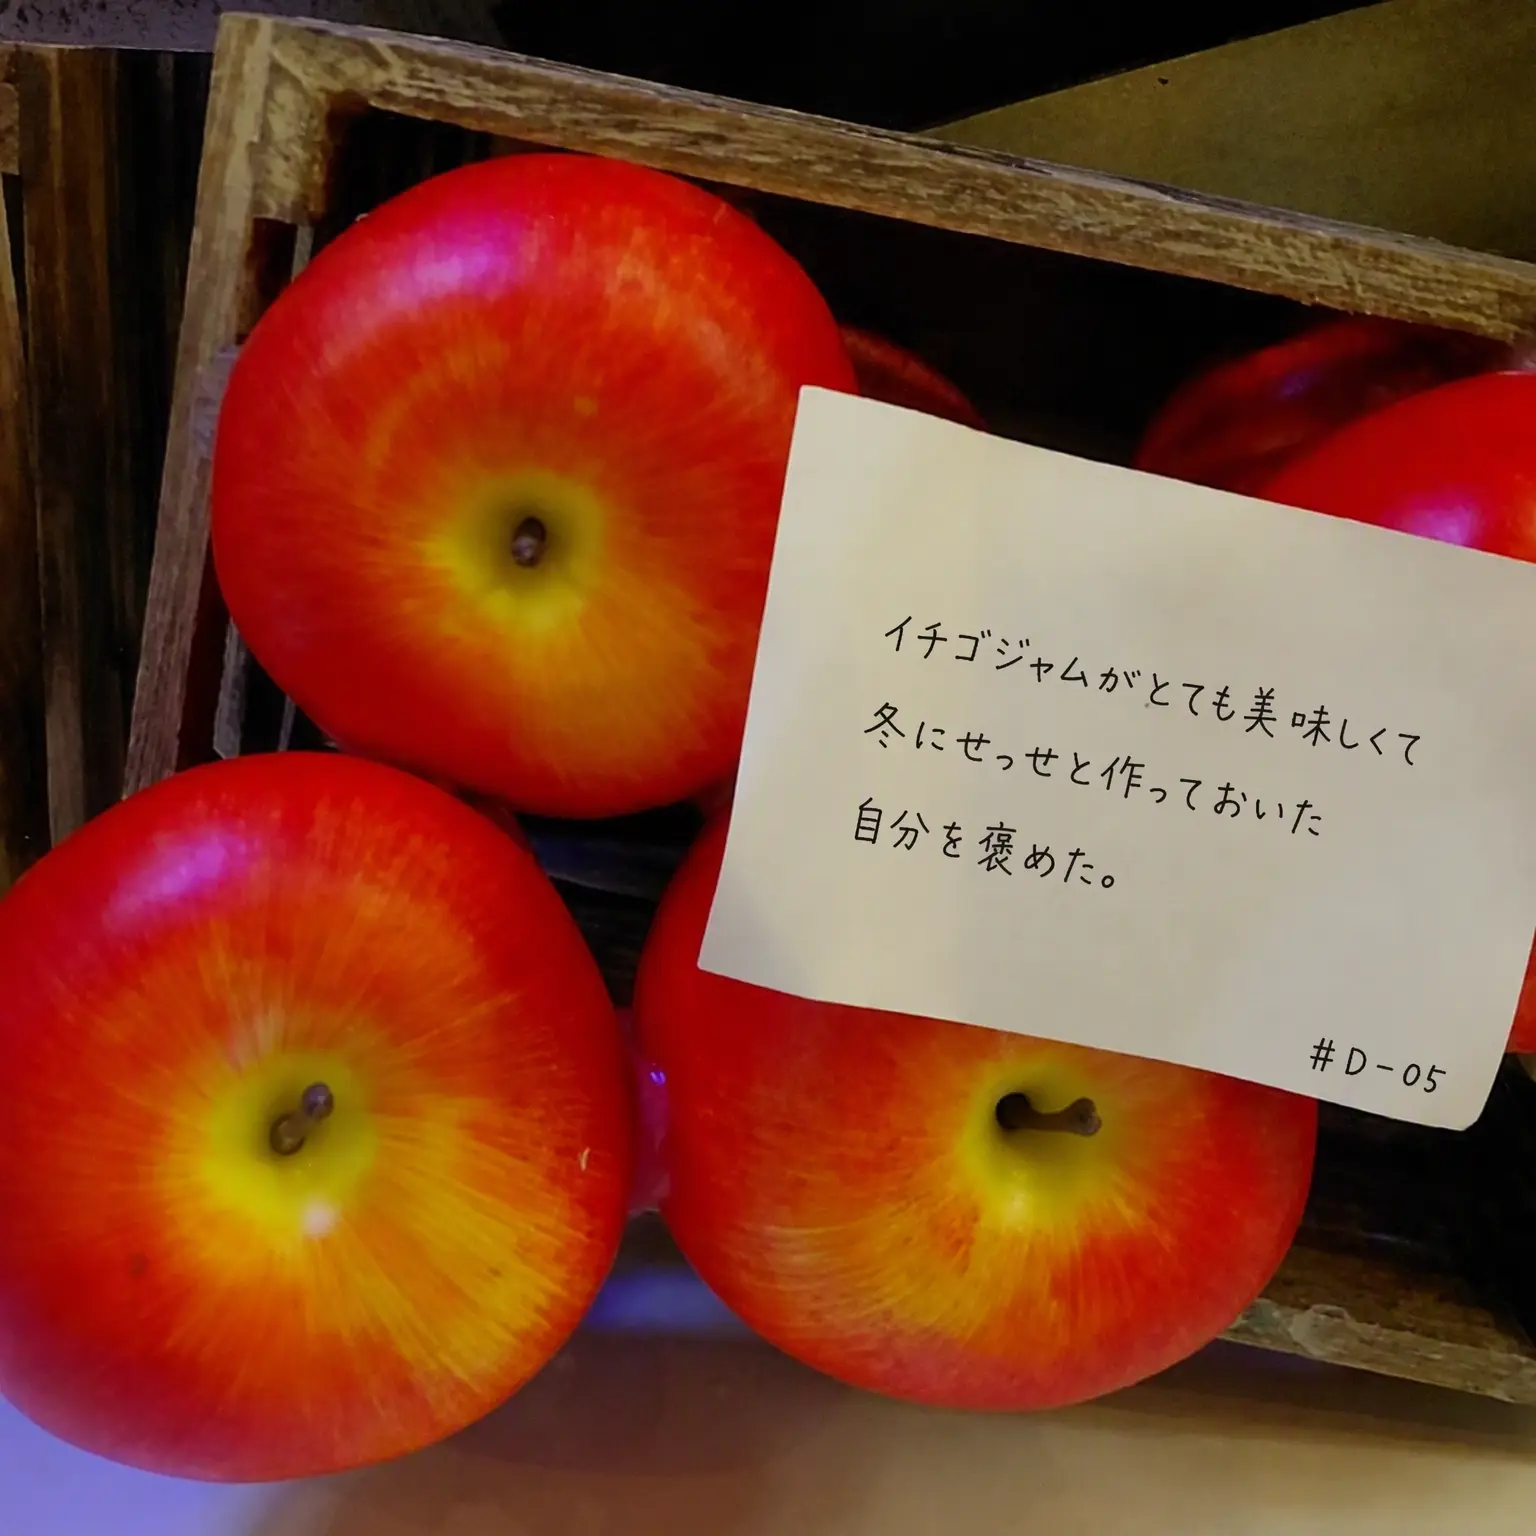 イチゴジャムがとても美味しくて
冬にせっせと作っておいた
自分を褒めた。
#D-05